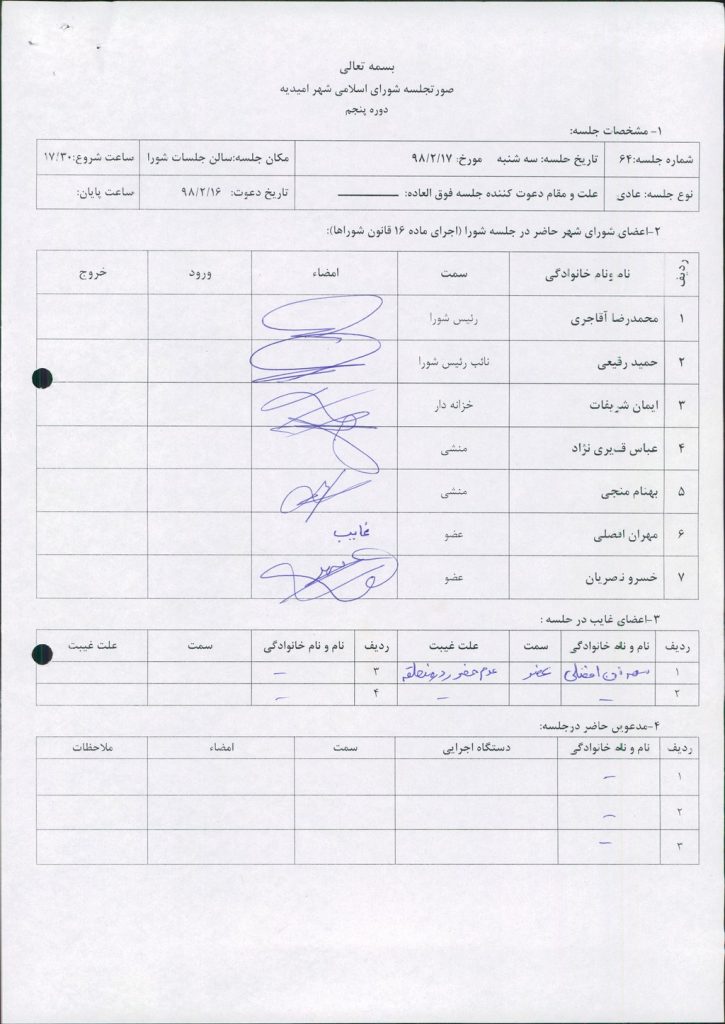 بسمه تعالی
صورتجلسه شورای اسلامی شهر امیدیه
دوره پنجم
۱- مشخصات جلسه:
شماره جلسه:۶۴ تاریخ جلسه: سه شنبه مورخ: ۹۸/۲/۱۷ مکان جلسه:سالن جلسات شورا ساعت شروع:۱۷/۳۰
نوع جلسه: عادی علت و مقام دعوت کننده جلسه فوق العاده: ـــــــــــــ تاریخ دعوت: ۹۸/۲/۱۶ ساعت پایان:
۲-اعضای شورای شهر حاضر در جلسه شورا (اجرای ماده ۱۶ قانون شوراها):
ردیف نام ونام خانوادگی سمت امضاء ورود خروج
۱ محمدرضا آقاجری رئیس شورا
۲ حمید رقیعی نائب رئیس شورا
۳ ایمان شریفات خزانه دار
۴ عباس قیری نژاد منشی
۵ بهنام منجی منشی
۶ مهران افضلی عضو غایب
۷ خسرو نصریان عضو
۳-اعضای غایب در جلسه :
ردیف نام و نام خانوادگی سمت علت غیبت ردیف نام و نام خانوادگی سمت علت غیبت
۱ مهران افضلی عضو عدم حضور در منطقه ۳ –
۲ – – ۴ –
۴-مدعوین حاضر درجلسه:
ردیف نام و نام خانوادگی دستگاه اجرایی سمت امضاء ملاحظات
۱ –
۲ –
۳ –